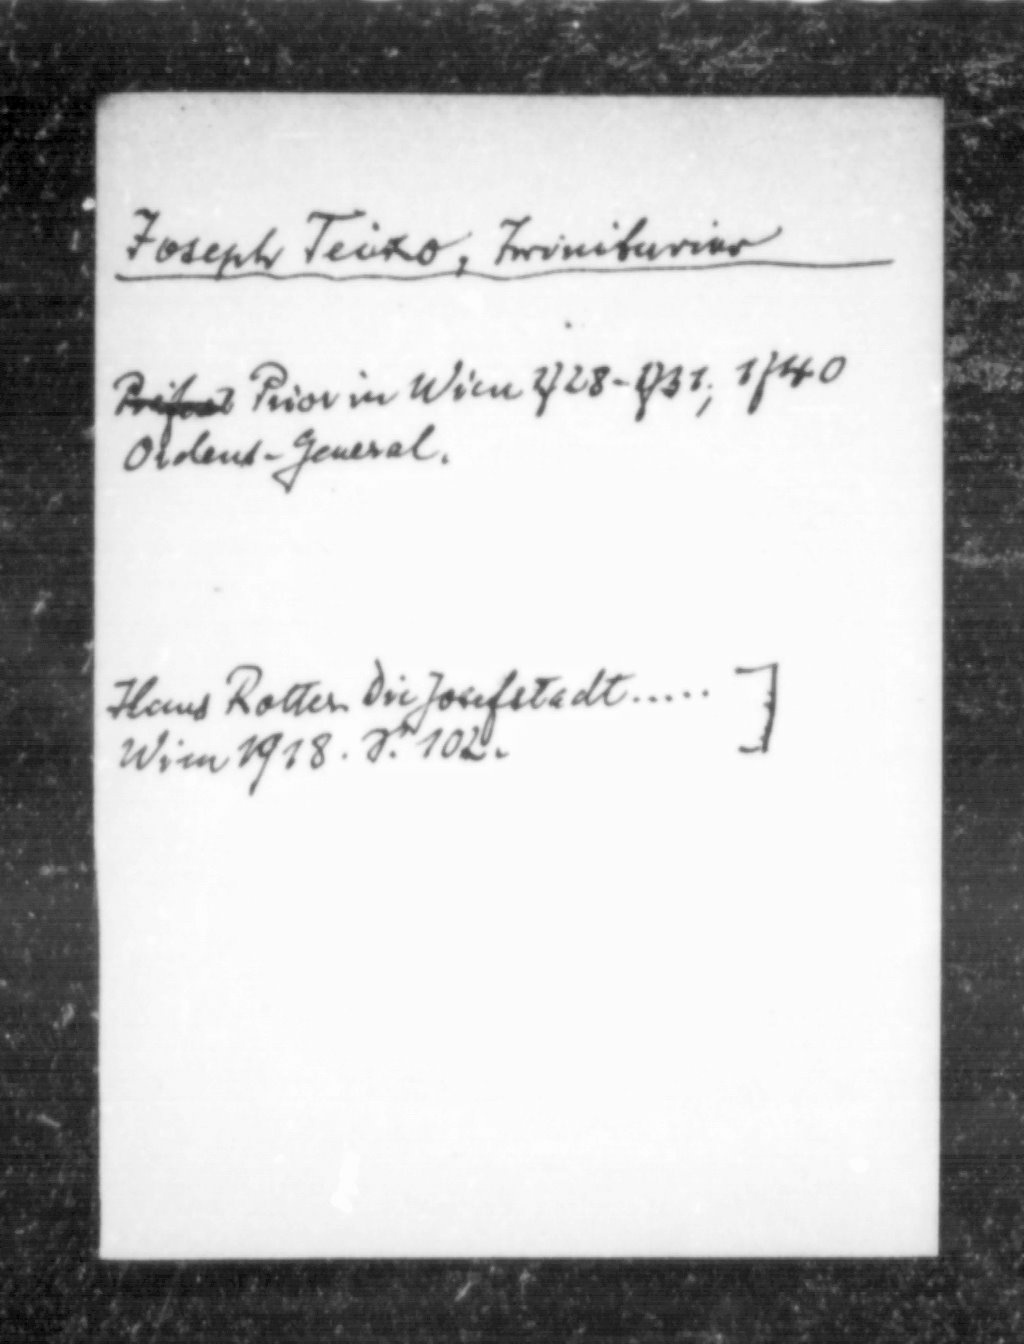 Joseph Teixo, Trinitarier
Prior in Wien 1728-1731; 1740
Ordens-General.
Hans Rotter. Die Josefstadt..... ]
Wien 1918. S. 102.